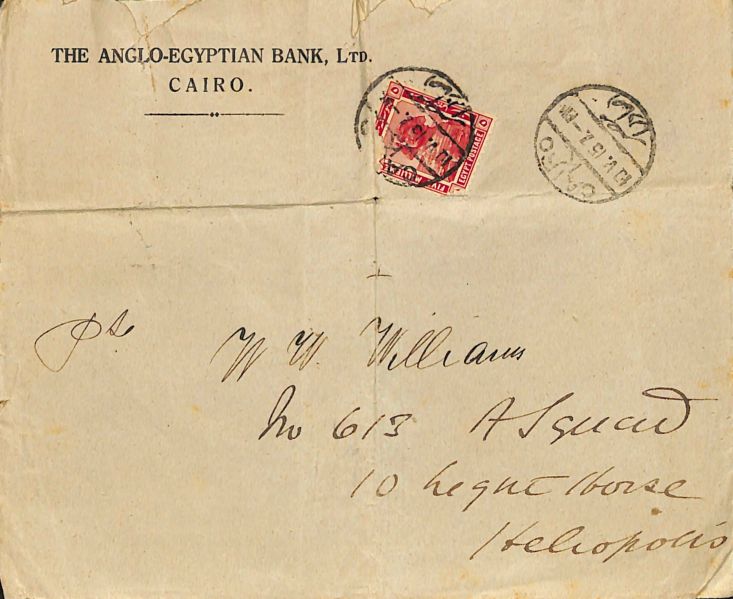 THE ANGLO-EGYPTIAN BANK, LTD.
CAIRO.
EGYPT POSTAGE
CAIRO
Pte W W. Williams
No 613 A Squad
10 Light Horse
Heliopolis